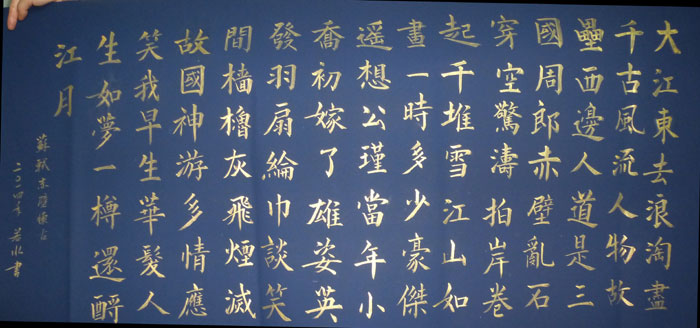 大江東去浪淘盡
千古風流人物故
壘西邊人道是三
國周郎赤壁亂石
穿空驚濤拍岸卷
起千堆雪江山如
畫一時多少豪傑
遥想公瑾當年小
喬初嫁了雄姿英
發羽扇綸巾談笑
間檣櫓灰飛煙滅
故國神游多情應
笑我早生華髮人
生如夢一樽還酹
江月
蘇軾赤壁懷古
二〇〇四年 若水書